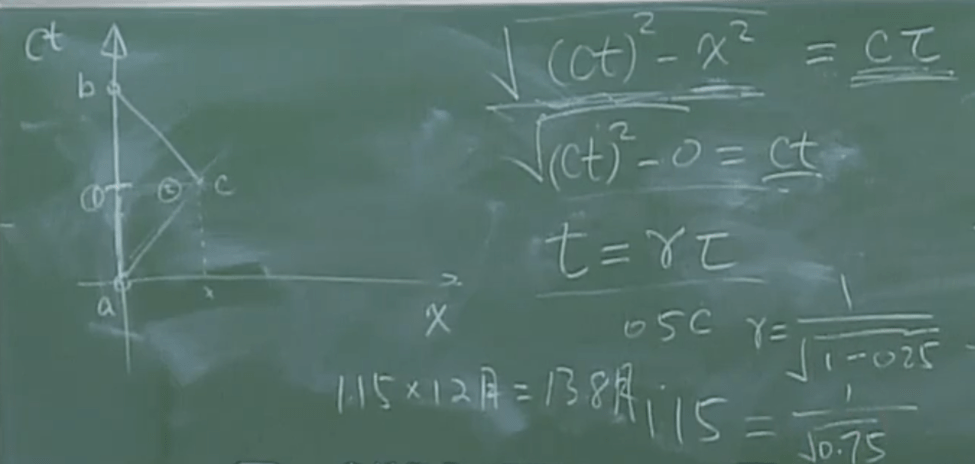 ct
b
① ② c
a x
x
√(ct)² - x² = cτ
√(ct)² - 0 = ct
t = γτ
0.5C γ = 1/√1-0.25
1.15 × 12月 = 13.8月
1.15 = 1/√0.75